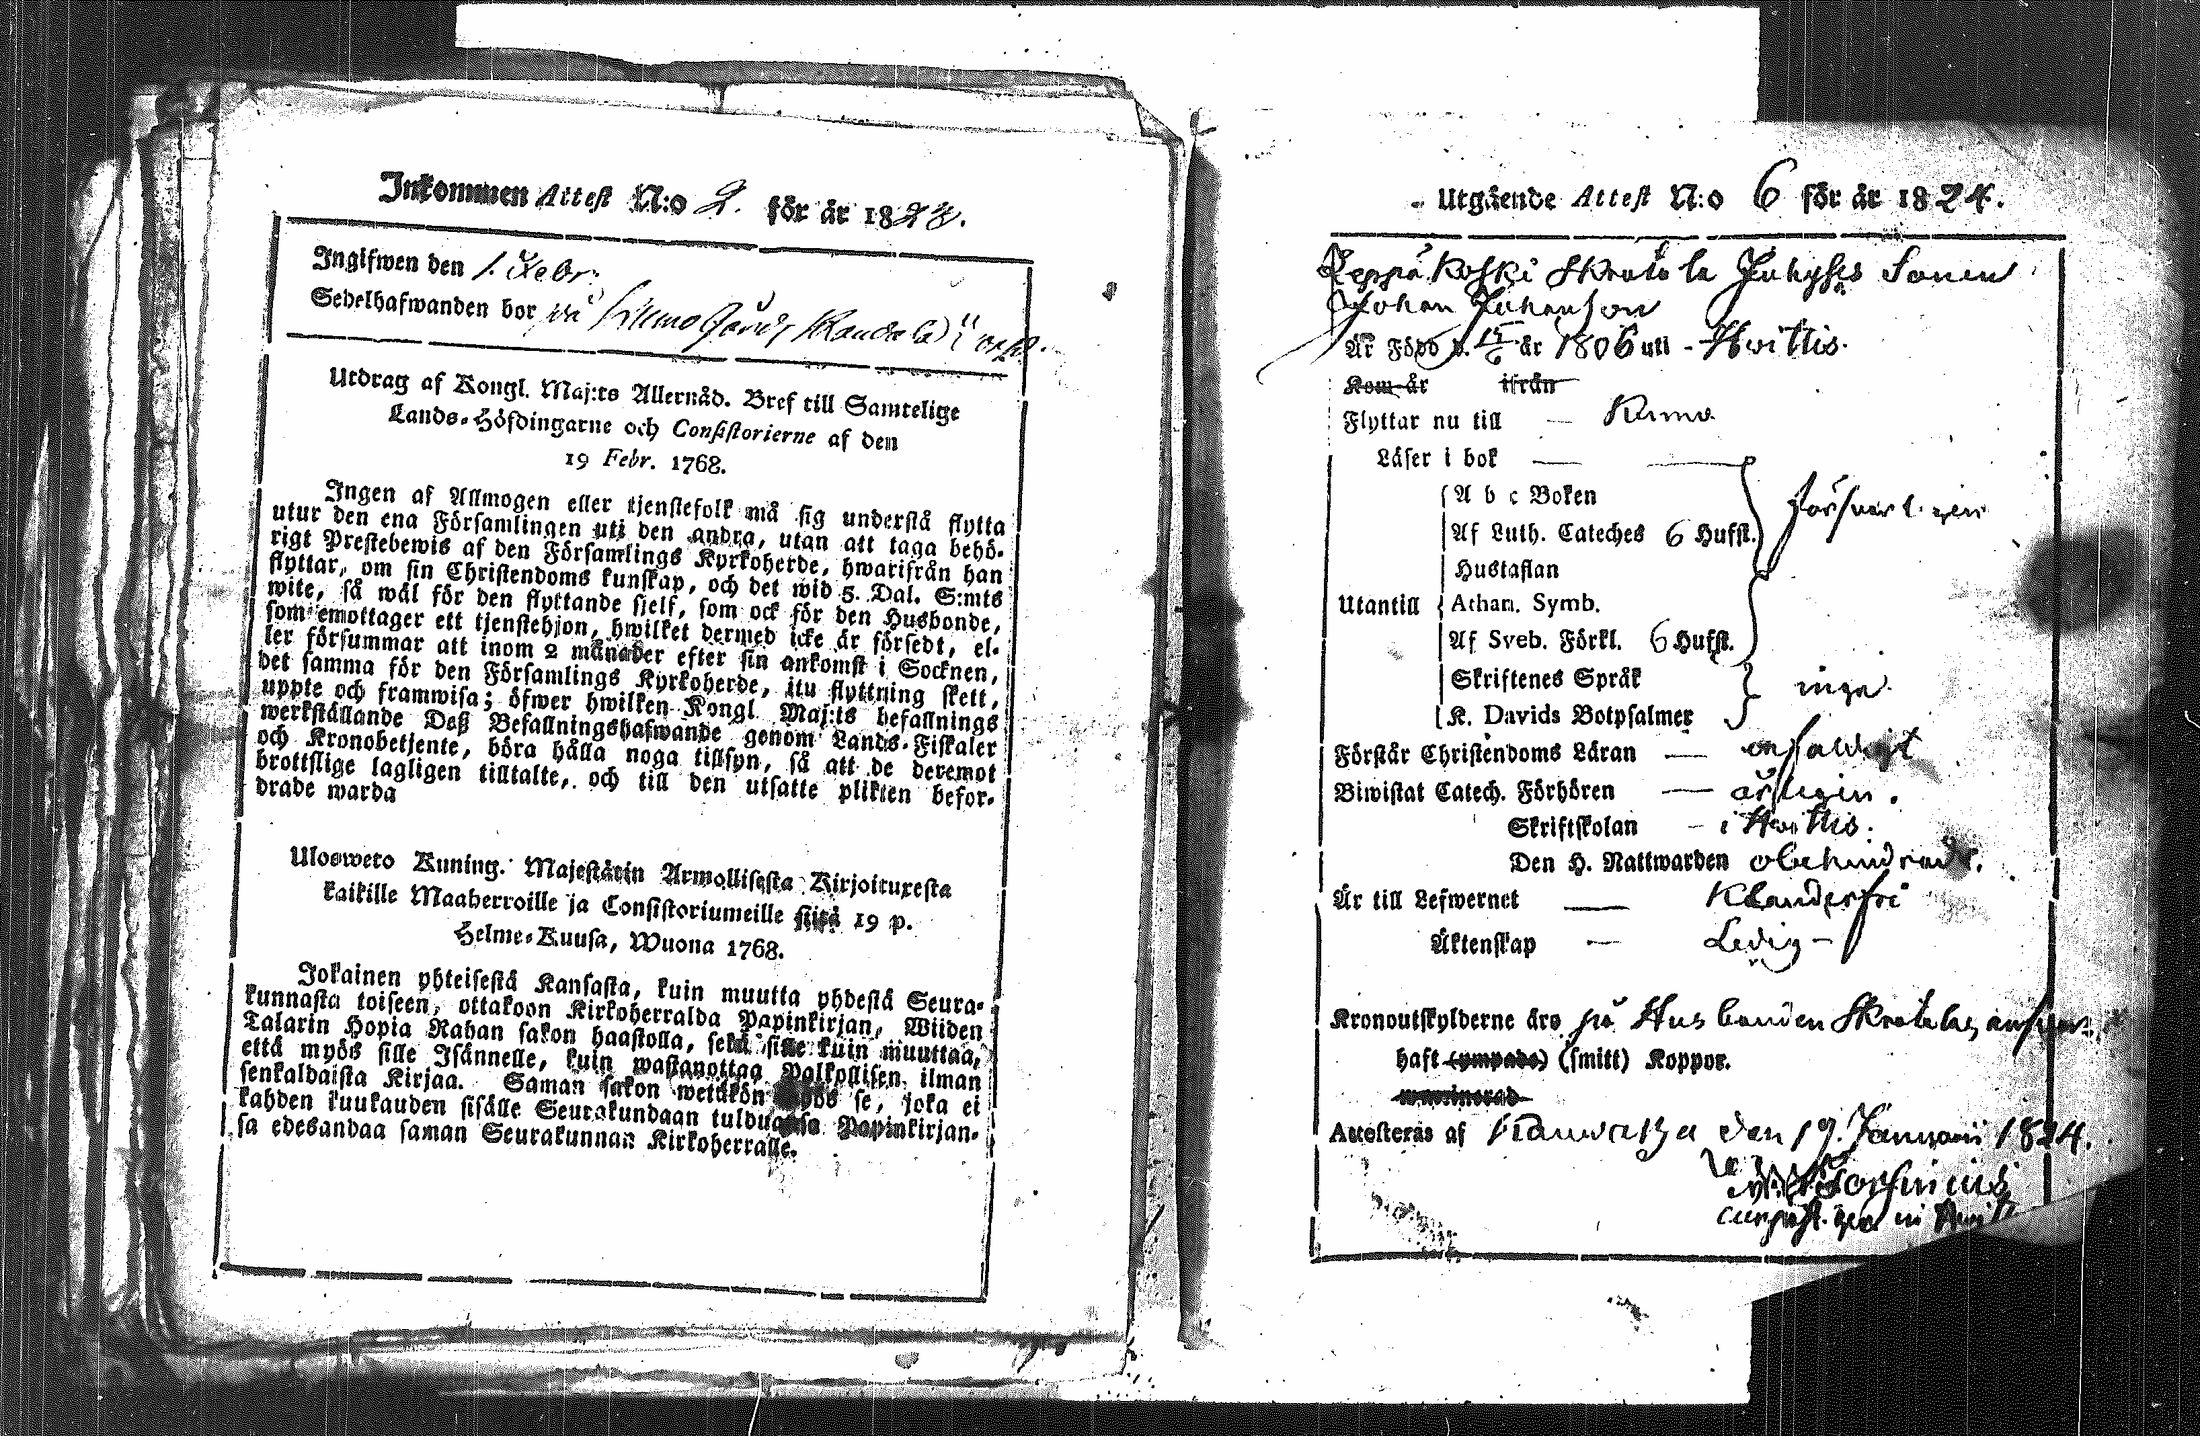 Inkommen Attest N:o 2. för år 1824.
Ingifwen den 1. Febr:
Sedelhafwanden bor på
Utdrag af Kongl. Maj:ts Allernåd. Bref till Samtelige
Lands-Höfdingarne och Consistorierne af den
19 Febr. 1768.
Ingen af Allmogen eller tjenstefolk må sig understå flytta
utur den ena Församlingen uti den andra, utan att taga behö-
rigt Prestebewis af den Församlings Kyrkoherde, hwarifrån han
flyttar, om sin Christendoms kunskap, och det wid 5. Dal. S:mts
wite, så wäl för den flyttande sjelf, som ock för den Husbonde,
som emottager ett tjenstehjon, hwilket dermed icke är försedt, el-
ler försummar att inom 2 månader efter sin ankomst i Socknen,
det samma för den Församlings Kyrkoherde, itu flyttning skett,
uppte och framwisa; öfwer hwilken Kongl. Maj:ts befallnings
werkställande Deß Befallningshafwande genom Lands-Fiskaler
och Kronobetjente, böra hålla noga tillsyn, så att de deremot
brottslige lagligen tilltalte, och till den utsatte plikten befor-
drade warda
Ulosweto Kuning. Majestätin Armollisesta Kirjoituxesta
kaikille Maaherroille ja Consistoriumeille siitä 19 p.
Helme-Kuusa, Wuona 1768.
Jokainen yhteisestä Kansasta, kuin muutta yhdestä Seura-
kunnasta toiseen, ottakoon Kirkoherralda Papinkirjan, Wiiden
Talarin Hopia Rahan sakon haastolla, sekä sille kuin muuttaa,
että myös sille Isännelle, kuin wastanottaa Palkollisen ilman
senkaldaista Kirjaa. Saman sakon wetäkön myös se, joka ei
kahden kuukauden sisälle Seurakundaan tulduansa Papinkirjan-
sa edesandaa saman Seurakunnan Kirkoherralle.
Utgående Attest N:o 6 för år 1824.
Leppäkoski Skratola Juhyses Sonen
Johan Johanson
Är Född d. 15/6 år 1806 uti - Hwittis.
Kom år ifrån
Flyttar nu till — Kumo
Läser i bok —
A b c Boken
Af Luth. Cateches 6 Hufst. försvarligen
Hustaflan
Utantill Athan. Symb.
Af Sveb. Förkl. 6 Hufst.
Skriftenes Språk inga
K. Davids Botpsalmer
Förstår Christendoms Läran — enfaldigt
Biwistat Catech. Förhören — årligen.
Skriftskolan - i Hwittis.
Den H. Nattwarden obehindrad.
Är till Lefwernet — Klanderfri
Äktenskap — Ledig -
Kronoutskylderne äro på Husbonden Skratolas answar
haft (ympade) (smitt) Koppor.
waccinerad
Attesteras af den 19. Januari 1824.